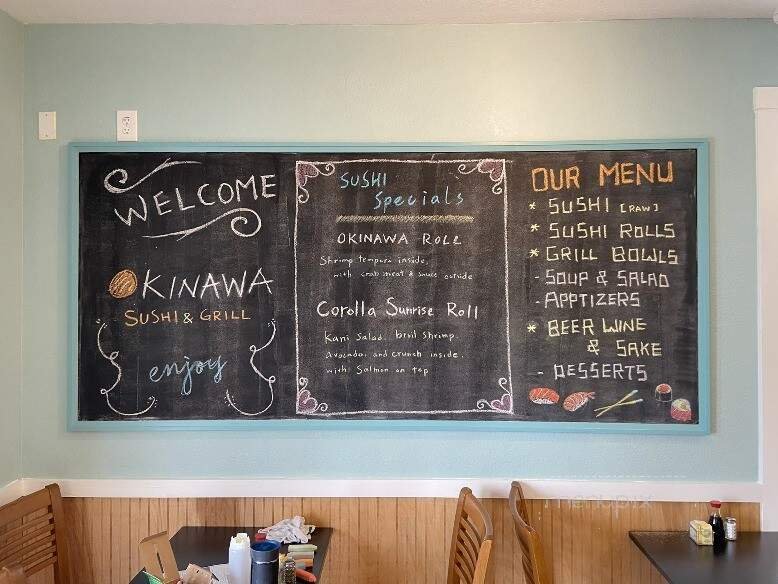 WELCOME
OKINAWA
SUSHI & GRILL
enjoy
SUSHI
Specials
OKINAWA ROLL
Shrimp tempura inside,
with crab meat & sauce outside
Corolla Sunrise Roll
Kani Salad, broil shrimp,
avocado, and crunch inside,
with Salmon on top
OUR MENU
* SUSHI [RAW]
* SUSHI ROLLS
* GRILL BOWLS
- SOUP & SALAD
- APPTIZERS
* BEER WINE
& SAKE
- DESSERTS
menupix